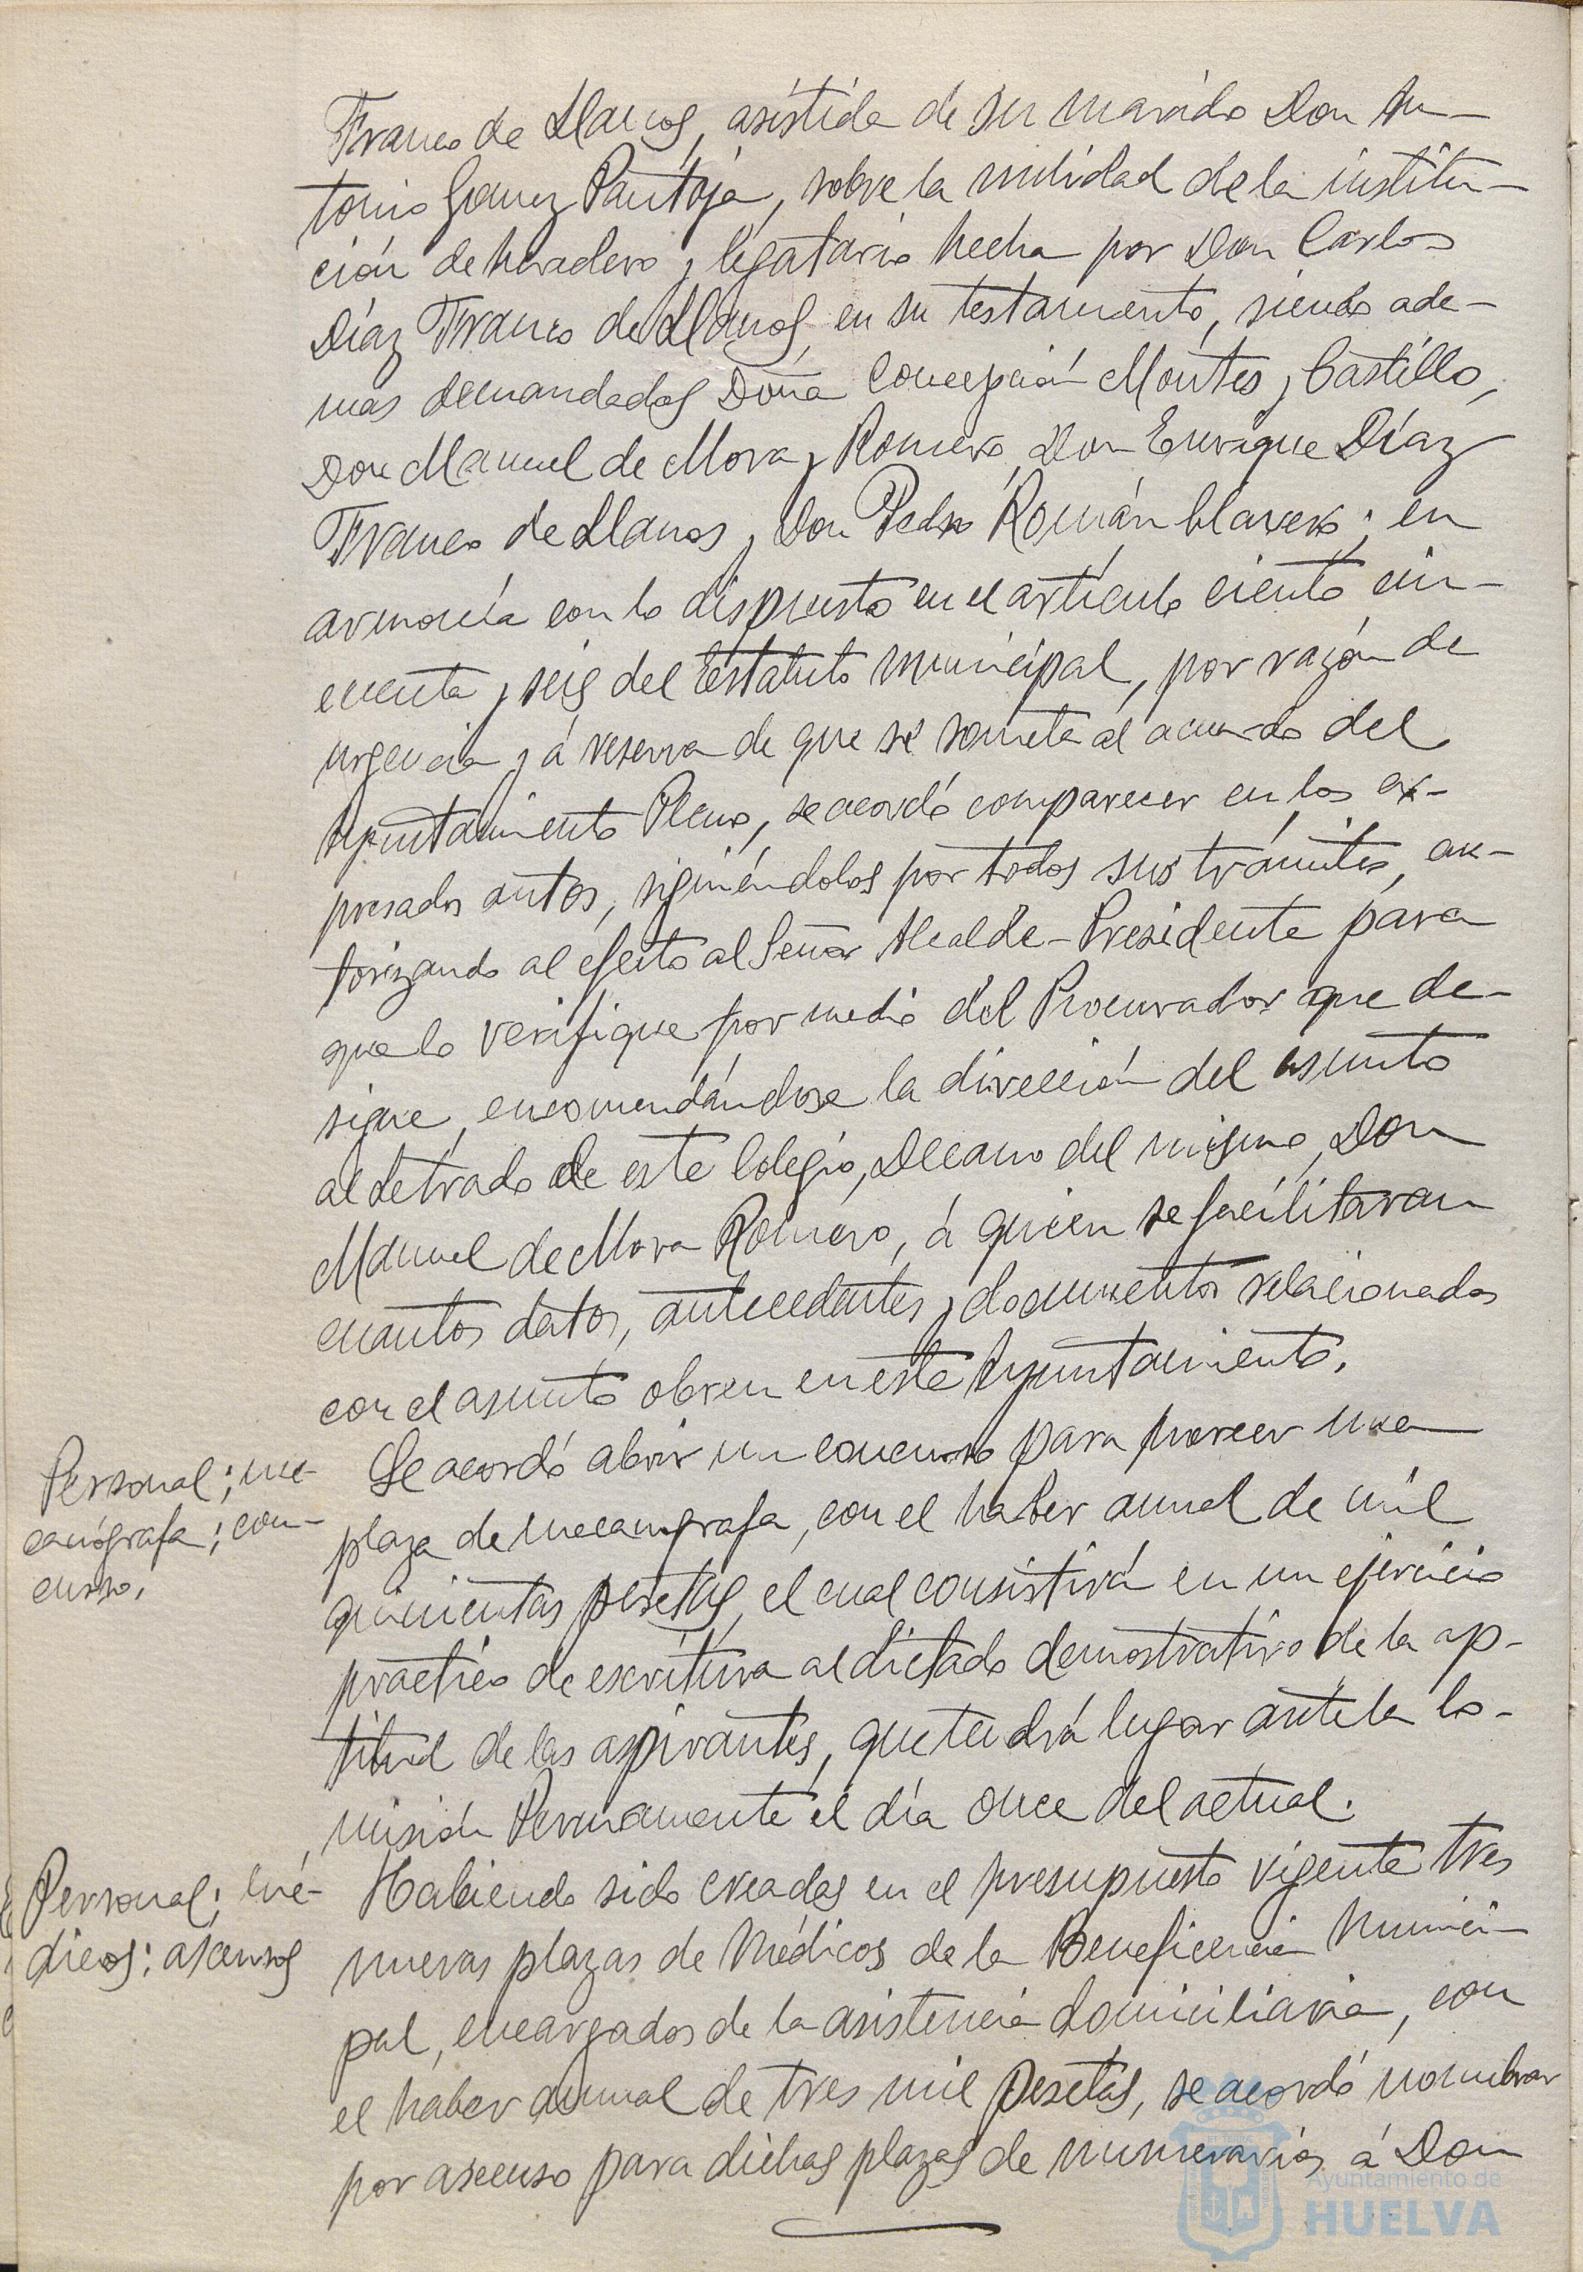 Franco de Llanos, asistida de su marido Don An-
tonio Gomez Pantoja, sobre la nulidad de la institu-
ción de heredero y legatario hecha por Don Carlos
Díaz Franco de Llanos, en su testamento, siendo ade-
mas demandados Doña Concepción Montes y Castillo,
Don Manuel de Mora y Romero, Don Enrique Díaz
Franco de Llanos y Don Pedro Román Clavero; en
armonía con lo dispuesto en el artículo ciento cin-
cuenta y seis del Estatuto Municipal, por razón de
urgencia y á reserva de que se someta al acuerdo del
Ayuntamiento Pleno, se acordó comparecer en los ex-
presados autos, siguiéndolos por todos sus trámites, au-
torizando al efecto al Señor Alcalde-Presidente para
que lo verifique por medio del Procurador que de-
signe, encomendándose la dirección del asunto
al Letrado de este Colegio, Decano del mismo, Don
Manuel de Mora Romero, á quien se facilitaran
cuantos datos, antecedentes y documentos relacionados
con el asunto obren en este Ayuntamiento.
Personal; me-
canógrafa; con-
curso.
Se acordó abrir un concurso para proveer una
plaza de mecanografa, con el haber anual de mil
quinientas pesetas, el cual consistirá en un ejercicio
practico de escritura al dictado demostrativo de la ap-
titud de las aspirantes, que tendrá lugar ante la Co-
misión Permanente el día once del actual.
Personal; mé-
dicos; ascensos
Habiendo sido creadas en el presupuesto vigente tres
nuevas plazas de Médicos de la Beneficencia Munici-
pal, encargados de la asistencia domiciliaria, con
el haber anual de tres mil pesetas, se acordó nombrar
por ascenso para dichas plazas de numerarios á Don
Ayuntamiento de
HUELVA